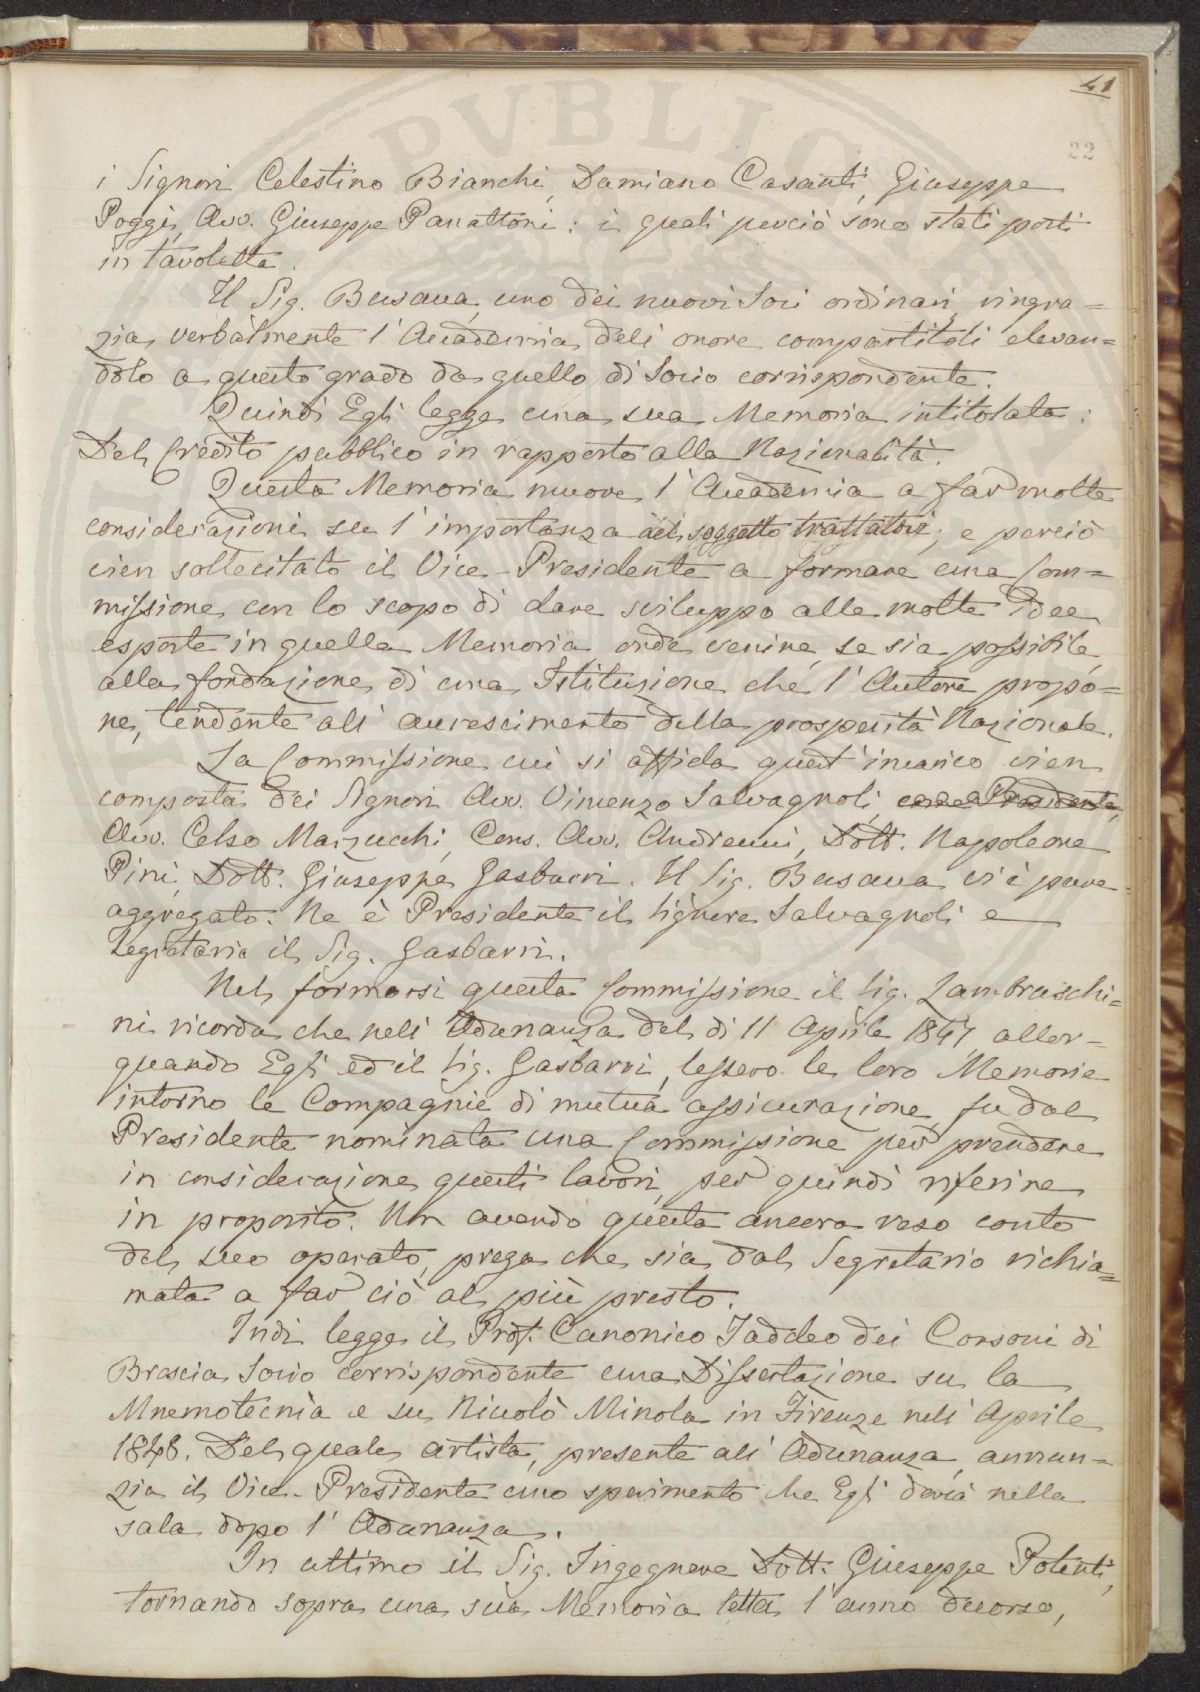 41
22
PVBLIC
i Signori Celestino Bianchi, Damiano Casanti, Giuseppe
Poggi, Avv. Giuseppe Panattoni: i quali perciò sono stati posti
in tavoletta.
Il Sig. Busacca, uno dei nuovi Soci ordinari, ringra=
zia verbalmente l'Accademia dell'onore compartitoli elevan=
dolo a questo grado da quello di Socio corrispondente.
Quindi Egli legge una sua Memoria intitolata:
Del Credito pubblico in rapporto alla Nazionalità.
Questa Memoria muove l'Accademia a far molte
considerazioni su l'importanza del soggetto trattatovi; e perciò
vien sollecitato il Vice-Presidente a formare una Com=
missione con lo scopo di dare sviluppo alle molte idee
esposte in quella Memoria onde venire, se sia possibile,
alla fondazione di una Istituzione che l'Autore propo=
ne, tendente all'accrescimento della prosperità Nazionale.
La Commissione cui si affida quest'incarico vien
composta dei Signori Avv. Vincenzo Salvagnoli, come Presidente,
Avv. Celso Marzucchi, Cons. Avv. Andreucci, Dott. Napoleone
Pini, Dott. Giuseppe Gasbarri. Il Sig. Busacca vi è pure
aggregato. Ne è Presidente il Signore Salvagnoli e
Segretario il Sig. Gasbarri.
Nel formarsi questa Commissione il Sig. Lambruschi=
ni ricorda che nell'Adunanza del dì 11 Aprile 1847, allor=
quando Egli ed il Sig. Gasbarri, lessero le loro Memorie
intorno le Compagnie di mutua assicurazione, fu dal
Presidente nominata una Commissione per prendere
in considerazione questi lavori, per quindi riferire
in proposito. Non avendo questa ancora reso conto
del suo operato, prega che sia dal Segretario richia=
mata a far ciò al più presto.
Indi legge il Prof. Canonico Taddeo dei Consoni di
Brescia Socio corrispondente una Dissertazione su la
Mnemotecnia e su Niccolò Minola in Firenze nell'Aprile
1848. Del quale artista, presente all'Adunanza, annun=
zia il Vice-Presidente uno sperimento che Egli darà nella
sala dopo l'Adunanza.
In ultimo il Sig. Ingegnere Dott. Giuseppe Potenti,
tornando sopra una sua Memoria letta l'anno decorso,